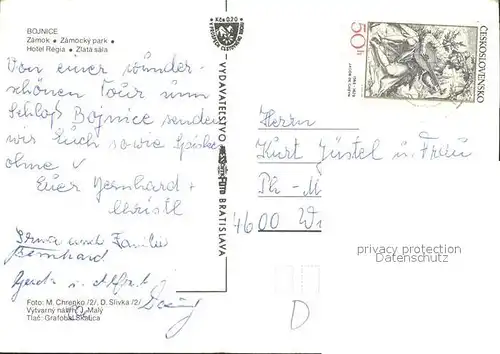 BOJNICE
Zámok • Zámocký park •
Hotel Régia • Zlatá sála
Kčs 0,20
ČESKOSLOVENSKO
50h
Von einer wunder-
schönen Tour um
Schloß Bojnice senden
wir Euch sowie
ohne
Euer Bernhard +
Christl
Irma und Familie
Bernhard
Gerda u.
VYDAVATEĽSTVO
BRATISLAVA
Herrn
Kurt Jüstel u. Frau
Ph-M
4600 Wi
privacy protection
Datenschutz
D
Foto: M. Chrenko /2/, D. Slivka /2/
Výtvarný návrh: J. Malý
Tlač: Grafobal Skalica